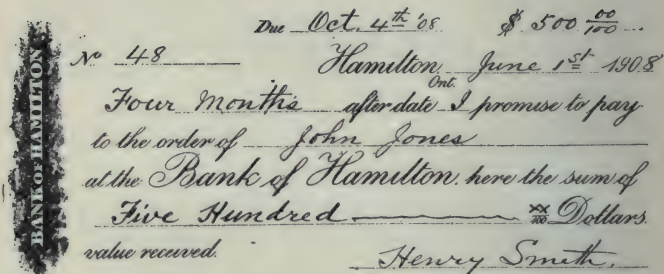 Due Oct. 4th '08 $ 500 00/100
No 48 Hamilton, Ont. June 1st 1908
Four Months after date I promise to pay
to the order of John Jones
at the Bank of Hamilton here the sum of
Five Hundred xx/100 Dollars
value received. Henry Smith.
BANK OF HAMILTON